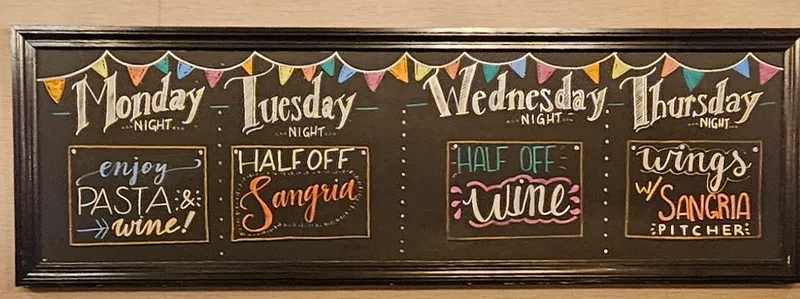 Monday
NIGHT
enjoy
PASTA &
wine!
Tuesday
NIGHT
HALF OFF
Sangria
Wednesday
NIGHT
HALF OFF
wine
Thursday
NIGHT
wings
w/ SANGRIA
PITCHER